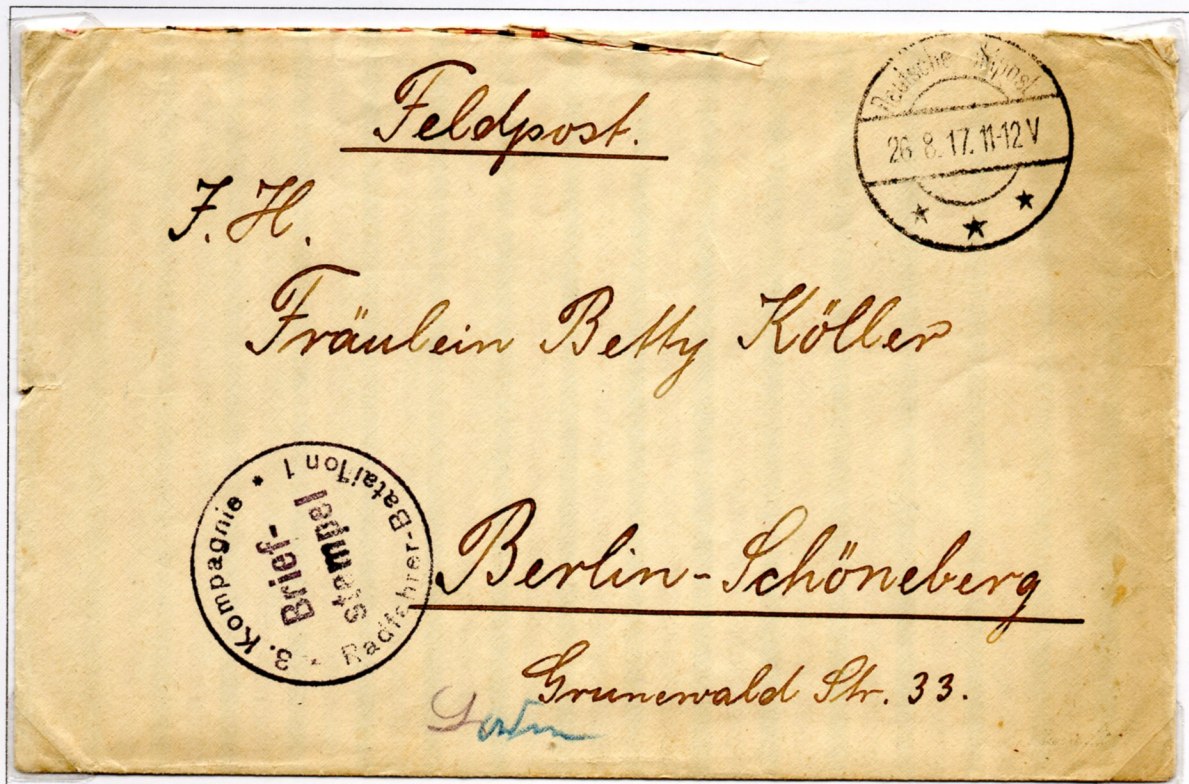 Feldpost.
Deutsche Feldpost
26 8. 17. 11-12 V
F. H.
Fräulein Betty Köller
3. Kompagnie * Radfahrer-Bataillon 1
Brief-
stempel
Berlin-Schöneberg
Grunewald Str. 33.